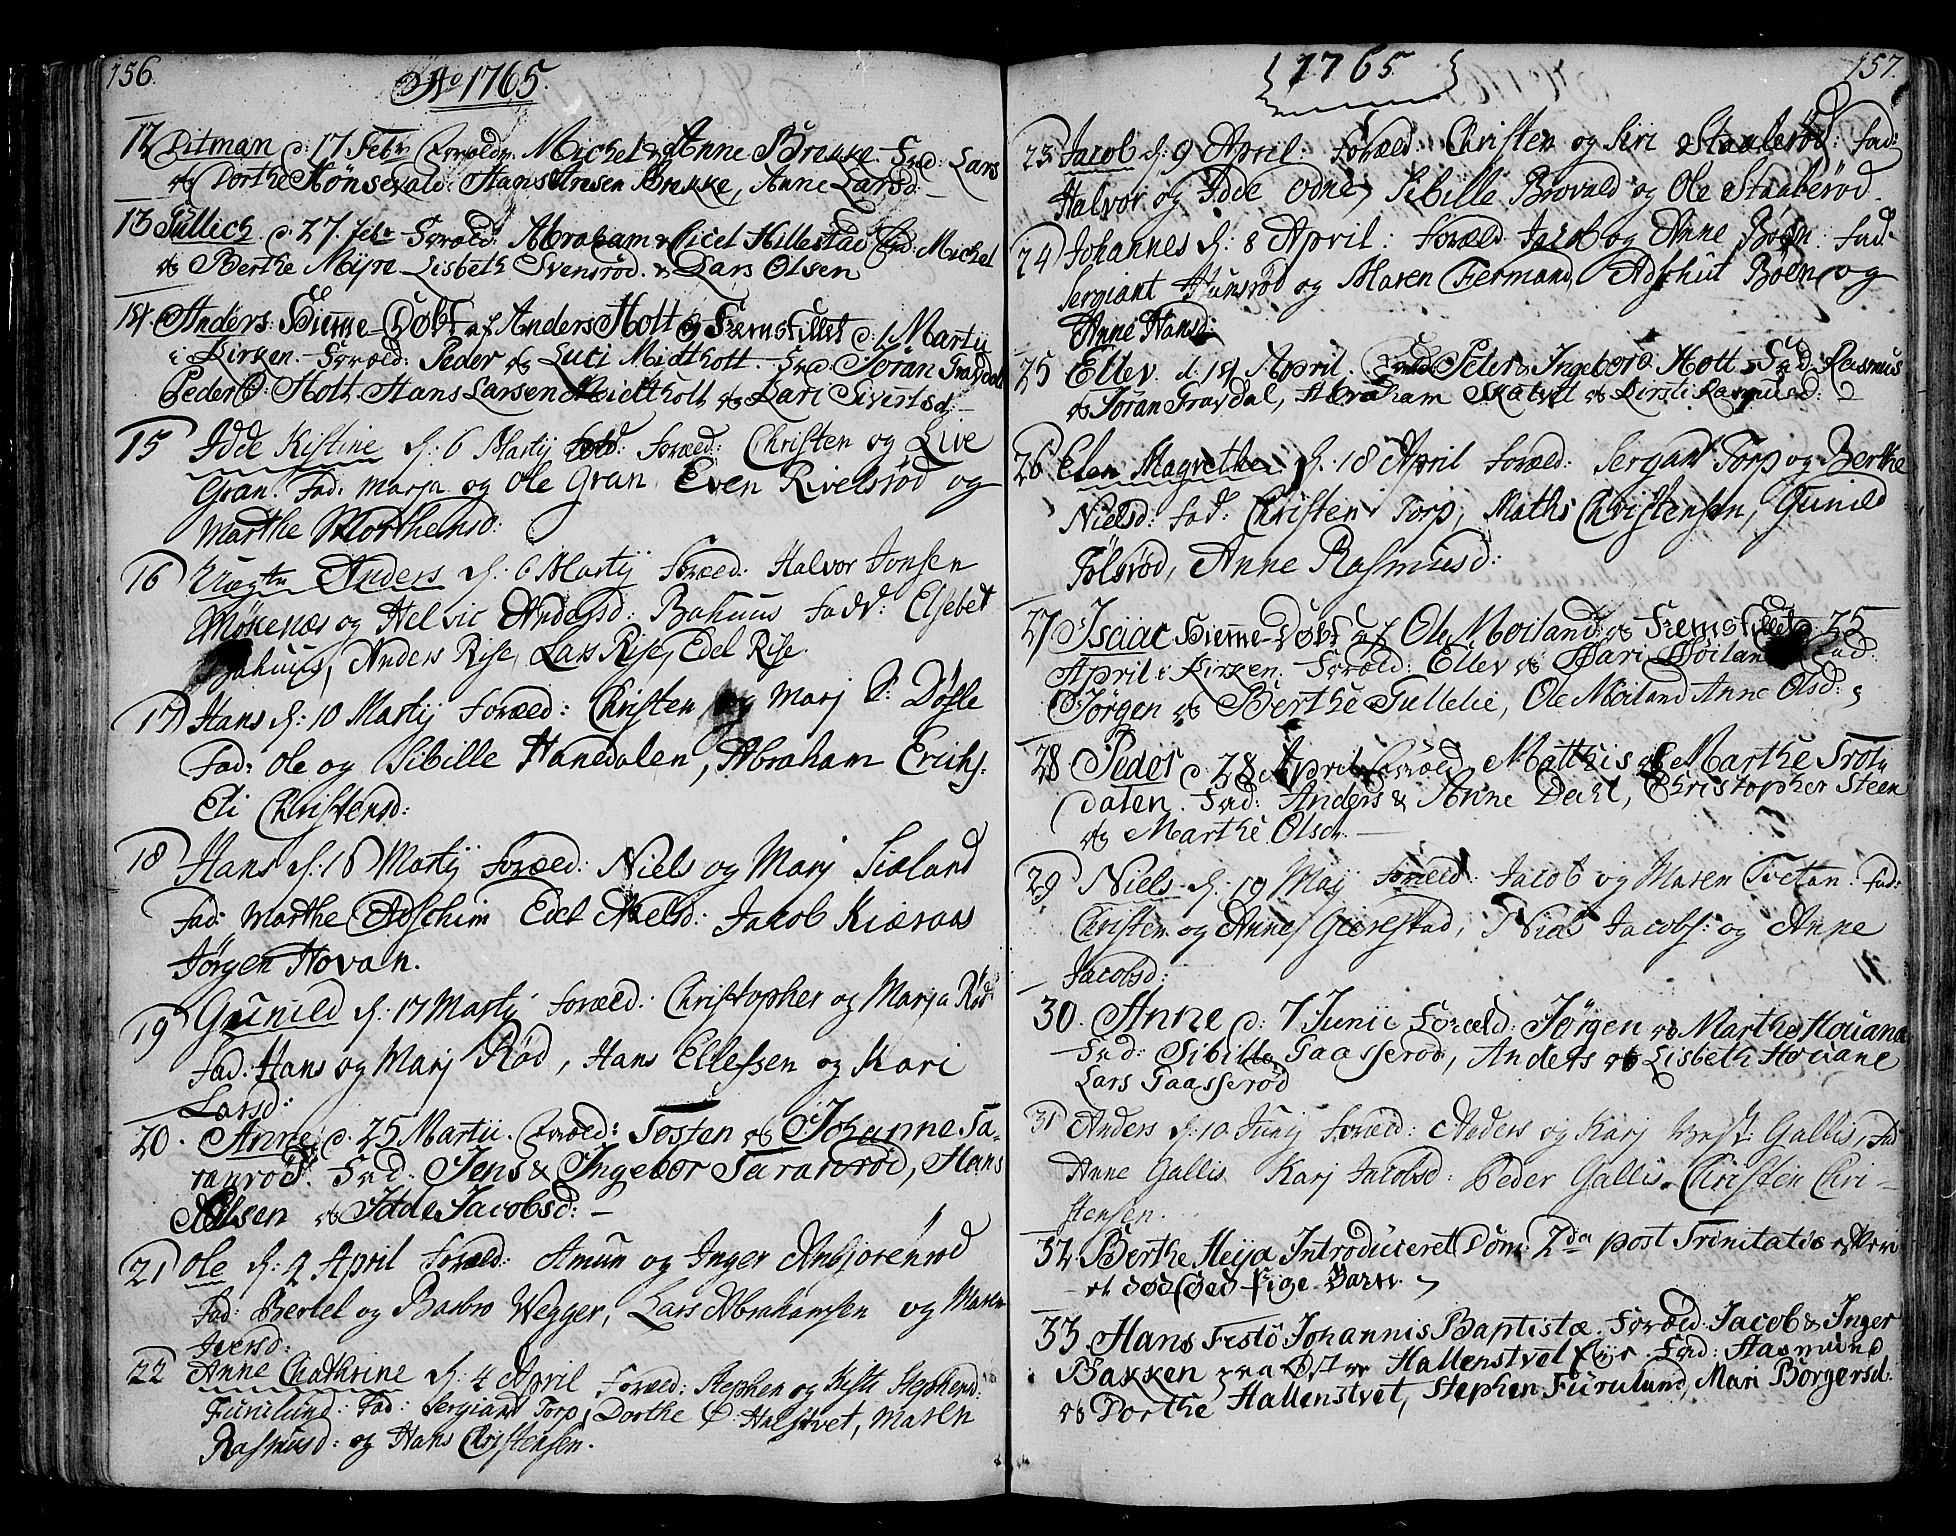 156.
Ao 1765.
12 Ditman d. 17 Febr Forældr. Michel & Anne Brekke. Fad: Lars
og Dorthe Hønsevald. Hans Brekke, Anne Larsd.
13 Tullich d. 27. Febr Foræld: Abraham & Cicel Hillestad Fad: Michel
og Berthe Myre Lisbeth Svensrød. & Lars Olsen
14. Anders. Hieme-Døbt af Anders Holt og Fremstillet d. 1 Martii
i Kirken. Foræld: Peder og Luci Midtholt. Fad: Joran Fravdal
Peder Holt Hans Larsen Midtholt og Kari Sivertsd:
15 Idde Kistine d. 6 Martij Foræld: Christen og Live
Gran. Fad: Marja og Ole Gran Even Rivelsrød og
Marthe Morthensd:
16 Anders d. 6 Martij Foræld: Halvor Jonsen
og Helvic Andersd: Bahuus Fadd: Elsebet
Bahuus, Anders Rise, Lars Rise, Edel Rise.
17 Hans d. 10 Martij Foræld: Christen og Marj Døfle
Fad: Ole og Sibille Hanedalen, Abraham Erichs.
Eli Christensd:
18 Hans d. 18 Martij Foræld: Niels og Marj Sieland
Fad: Marthe Edel Nielsd: Jacob Kieraas
Jørgen Hovan.
19 Gunild d. 17 Martij Foræld: Christopher og Marja Rød
Fad: Hans og Marj Rød, Hans Ellefsen og Kari
Larsd:
20. Anne d. 25 Martii. Foræld: Tosten og Johanne Ta-
ranrød. Fad: Jens & Ingebor Taranrød, Hans
Nilsen og Idde Jacobsd:
21 Ole d. 2 April Foræld: Amun og Inger Anbjorenrød
Fad: Bertel og Barbro Wegger, Lars Abrahamsen og Maren
Iversd:
22 Anne Chathrine d. 4 April Foræld: Stephen og Kisti Stephensd:
Furulund. Fad: Sergiant Torp, Dorthe Halstvet, Maren
Rasmusd: og Hans Christensen.
157.
1765
23 Jacob d. 9 April. Foræld: Christen og Siri Staalerød: Fad:
Halvor og Idde Odne, Sibille Brovald og Ole Staalerød
24 Johannes d. 8 April: Foræld Jacob og Anne Bøen: Fad:
Sergiant Hunsrød og Maren Fermand, Bøen, og
Anne Hansd:
25 Ellev d. 14 April. Foræld Peter & Ingebord Holt Fad: Rasmus
og Joran Fravdal, Abraham Skatvet og Kirsti Rasmusd:
26 Elen Magrethe d. 18 April Foræld: Sergant Torp og Berthe
Nielsd: Fad: Christen Torp, Maths Christensen, Gunild
Følsrød, Anne Rasmusd:
27 Isaac Hieme-Døbt af Ole Moiland og Fremstillet 25
April i Kirken. Foræld: Ellev og Mari Moiland Fad:
Jørgen og Berthe Gullelie, Ole Moiland Anne Olsd:
28 Peder d. 28 April Foræld. Matthis og Marthe Trol-
dalen. Fad: Anders & Anne Dahl, Christopher Steen
og Marthe Olsd.
29 Niels d. 19 Maij Foræld: Jacob og Maren Tvetan. Fad:
Christen og Anne Gierestad, Niels Jacobs: og Anne
Jacobsd:
30. Anne d. 7 Junii Foræld: Jørgen og Marthe Houane
Fad: Sibilla Gaasserød, Anders og Lisbeth Houane
Lars Gaasserød
31 Anders d. 10 Junij Foræld: Anders og Karj Gallis, Fad
Anne Gallis Karj Jacobsd: Peder Gallis, Christen Chri-
stensen.
32 Berthe Heija Introduceret Dom: 2da post Trinitatis efter
et dødføed Pige Barn.
33. Hans Festo Johannis Baptistæ. Foræld. Jacob & Inger
Bakken paa Østre Hallenstvet Eije. Fad: Hasmund
og Dorthe Hallenstvet, Stephen Furulund, Mari Børgersd.